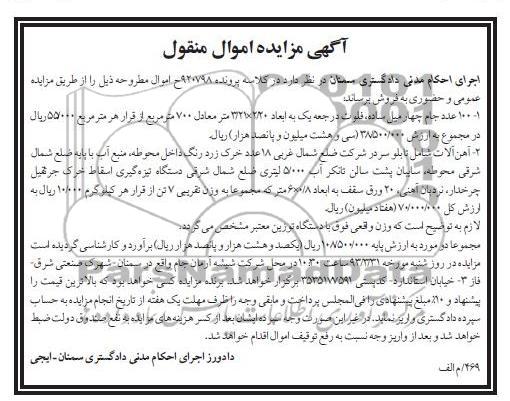 آگهی مزایده اموال منقول
اجرای احکام مدنی دادگستری سمنان در نظر دارد در کلاسه پرونده ۹۲۰۷۹۸ح اموال مطروحه ذیل را از طریق مزایده
عمومی و حضوری به فروش برساند:
۱- ۱۰۰ عدد جام چهار میل ساده، فلوت درجه یک به ابعاد ۲/۲۰*۳/۲۱ متر معادل ۷۰۰ مترمربع از قرار هر مترمربع ۵۵/۰۰۰ ریال
در مجموع به ارزش ۳۸/۵۰۰/۰۰۰ (سی و هشت میلیون و پانصد هزار) ریال.
۲- آهن‌آلات شامل تابلو سر در شرکت ضلع شمال غربی ۱۸ عدد خرک زرد رنگ داخل محوطه، منبع آب با پایه ضلع شمال
شرقی محوطه، سایبان پشت سالن تانکر آب ۵۰۰۰ لیتری ضلع شمال شرقی دستگاه تیزه‌گیری اسقاط خرک جرثقیل
چرخدار، نردبان آهنی، ۲۰ ورق سقف به ابعاد ۰/۸*۶ متر که مجموعا به وزن تقریبی ۷ تن از قرار هر کیلوگرم ۱۰/۰۰۰ ریال به
ارزش کل ۷۰/۰۰۰/۰۰۰ (هفتاد میلیون) ریال.
لازم به توضیح است که وزن واقعی فوق با دستگاه توزین معتبر مشخص می‌گردد.
مجموعا دو مورد به ارزش پایه ۱۰۸/۵۰۰/۰۰۰ ریال (یکصد و هشت هزار و پانصد هزار ریال) برآورد و کارشناسی گردیده است
مزایده در روز شنبه مورخه ۹۳/۳/۳۱ ساعت ۱۰:۳۰ در محل شرکت شیشه آرمان جام واقع در سمنان- شهرک صنعتی شرق-
فاز ۳- خیابان استاندارد- کدپستی ۳۵۳۵۱۷۷۵۹۱ برگزار خواهد شد. برنده مزایده کسی خواهد بود که بالاترین قیمت را
پیشنهاد و ۱۰٪ مبلغ پیشنهادی را فی‌المجلس پرداخت و مابقی وجه را ظرف مهلت یک هفته از تاریخ انجام مزایده به حساب
سپرده دادگستری واریز نماید. در غیر این صورت وجه سپرده ایشان بعد از کسر هزینه‌های مزایده به نفع صندوق دولت ضبط
خواهد شد و بعد از واریز وجه نسبت به رفع توقیف اموال اقدام خواهد شد.
دادورز اجرای احکام مدنی دادگستری سمنان- ایجی
۴۶۹/م الف
ParsNamadData